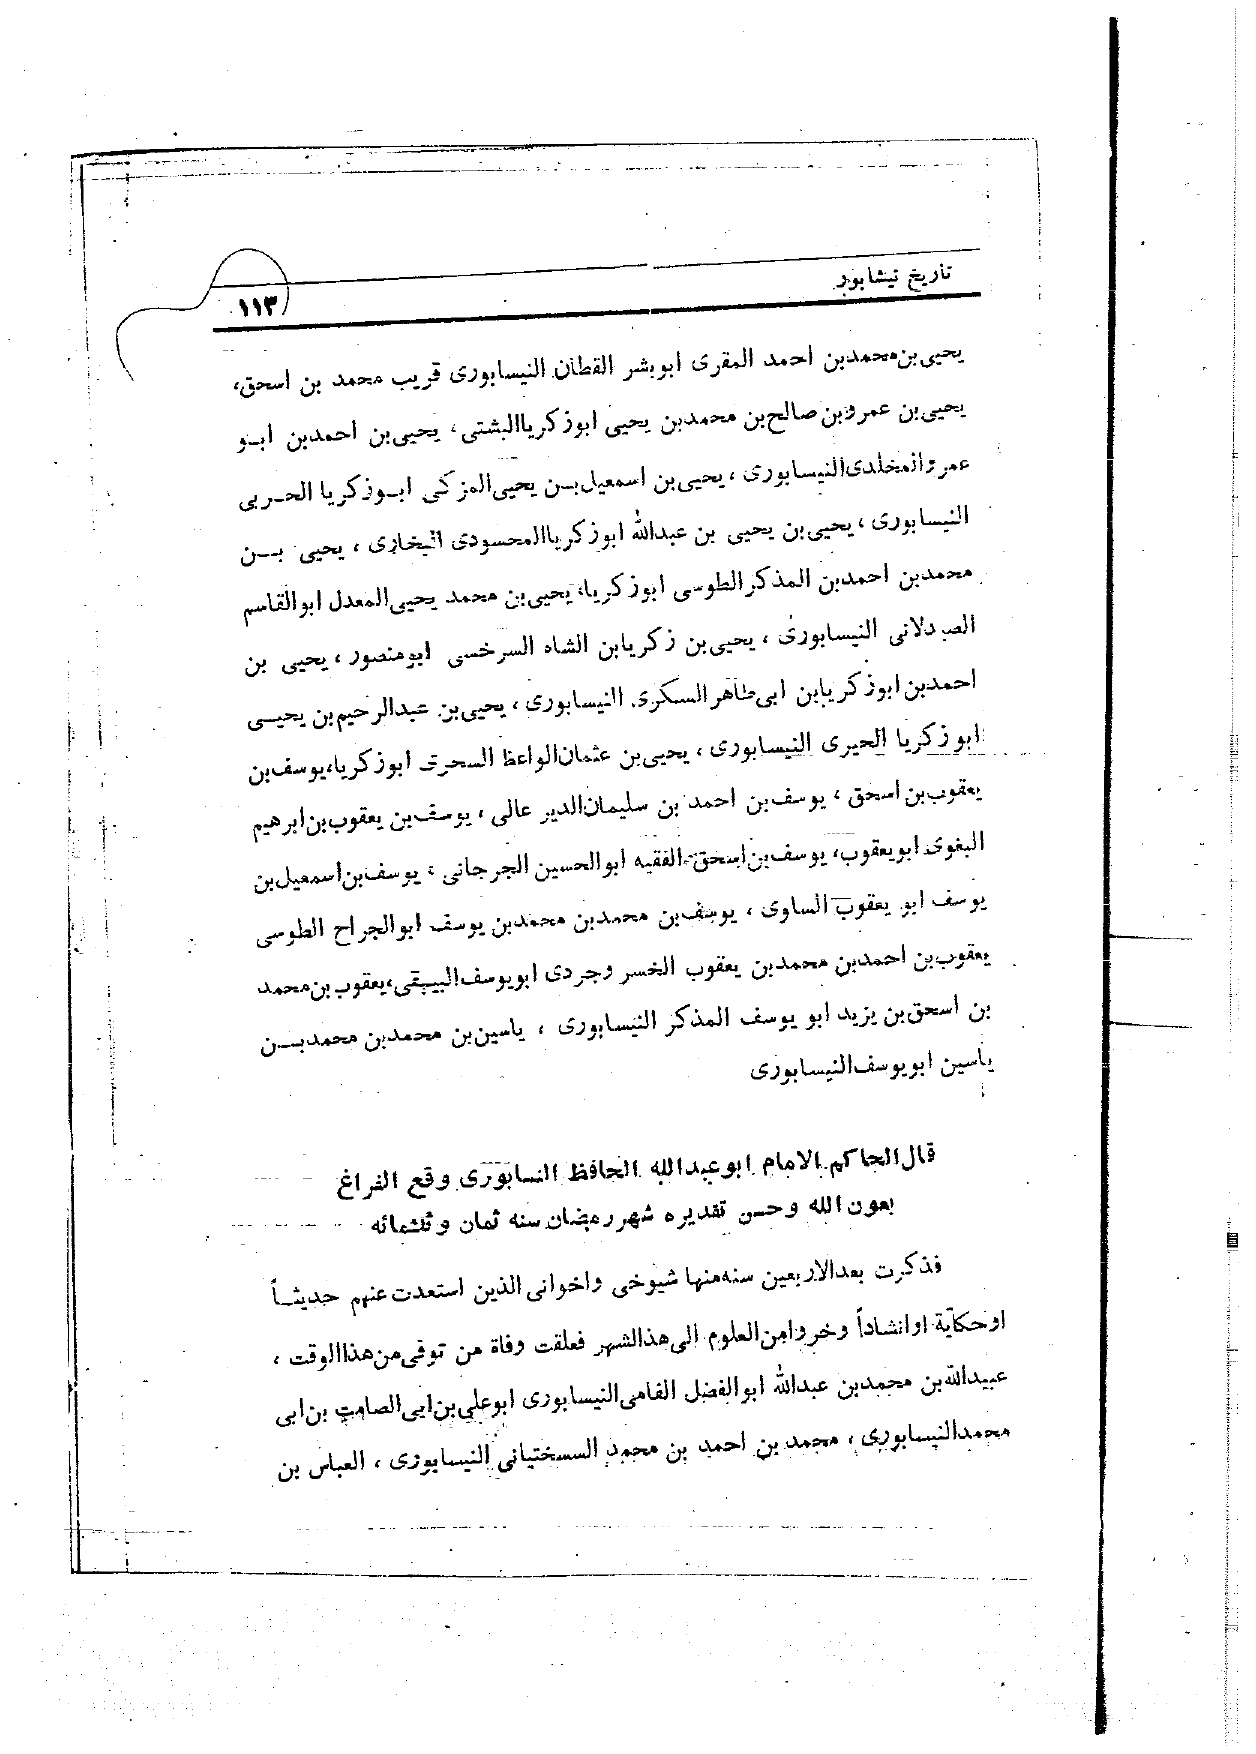 تاریخ نیشابور
۱۱۳
یحیی بن محمد بن احمد المقری ابو بشر القطان النیسابوری قریب محمد بن اسحق،
یحیی بن عمرو بن صالح بن محمد بن یحیی ابوزکریا البشتی، یحیی بن احمد بن ابو
عمرو المخلدی النیسابوری، یحیی بن اسمعیل بن یحیی المزکی ابوزکریا الحربی
النیسابوری، یحیی بن یحیی بن عبدالله ابوزکریا المحسودی البخاری، یحیی بن
محمد بن احمد بن المذکر الطوسی ابوزکریا، یحیی بن محمد یحیی المعدل ابوالقاسم
الصیدلانی النیسابوری، یحیی بن زکریا بن الشاه السرخسی ابومنصور، یحیی بن
احمد بن ابوزکریا بن ابی طاهر السکری النیسابوری، یحیی بن عبدالرحیم بن یحیی
ابوزکریا الحیری النیسابوری، یحیی بن عثمان الواعظ السحری ابوزکریا، یوسف بن
یعقوب بن اسحق، یوسف بن احمد بن سلیمان الدیر عالی، یوسف بن یعقوب بن ابرهیم
البغوی ابویعقوب، یوسف بن اسحق الفقیه ابوالحسین الجرجانی، یوسف بن اسمعیل بن
یوسف ابو یعقوب الساوی، یوسف بن محمد بن محمد بن یوسف ابوالجراح الطوسی
یعقوب بن احمد بن محمد بن یعقوب الخسر وجردی ابویوسف البیهقی، یعقوب بن محمد
بن اسحق بن یزید ابو یوسف المذکر النیسابوری، یاسین بن محمد بن محمد بن
یاسین ابویوسف النیسابوری
قال الحاکم الامام ابوعبدالله الحافظ النسابوری وقع الفراغ
بعون الله وحسن تقدیره شهر رمضان سنه ثمان وثلثمائه
فذکرت بعد الاربعین سنه منها شیوخی واخوانی الذین استعدت عنهم حدیثاً
اوحکآیة اوانشاداً وخروا من العلوم الی هذالشهر فعلقت وفاة من توفی من هذا الوقت،
عبیدالله بن محمد بن عبدالله ابوالفضل الفامی النیسابوری ابوعلی بن ابی الصامت بن ابی
محمد النیسابوری، محمد بن احمد بن محمد السختیانی النیسابوری، العباس بن